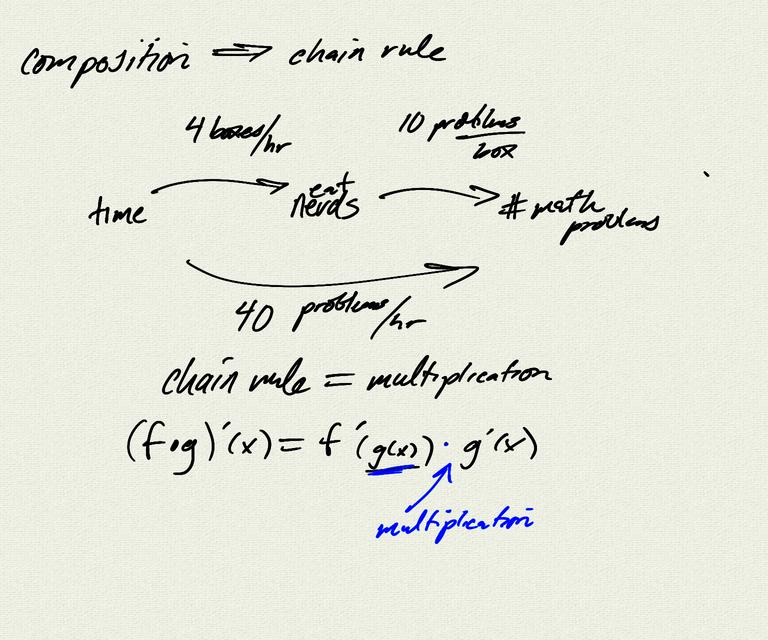 composition ⟹ chain rule
4 boxes/hr
10 problems/box
time
eat
nerds
# math
problems
40 problems/hr
chain rule = multiplication
(f∘g)′(x) = f′(g(x)) · g′(x)
multiplication